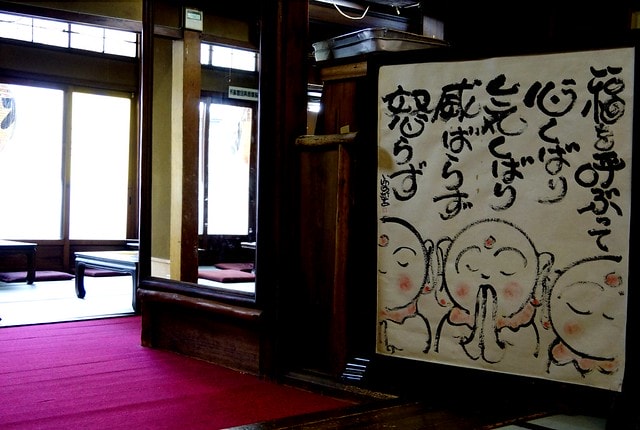 福を呼ぶって
心くばり
気くばり
威ばらず
怒らず